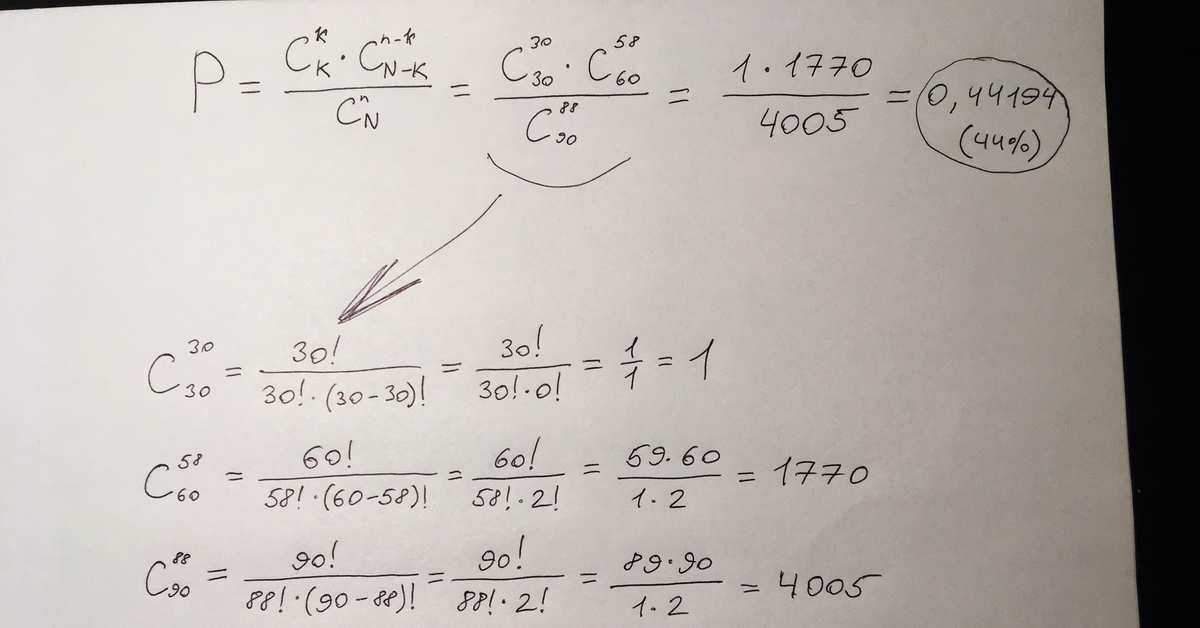 P = (C_K^k · C_{N-K}^{n-k}) / C_N^n = (C_30^30 · C_60^58) / C_90^88 = (1 · 1770) / 4005 = 0,44194
(44%)
C_30^30 = 30! / (30! · (30-30)!) = 30! / (30! · 0!) = 1/1 = 1
C_60^58 = 60! / (58! · (60-58)!) = 60! / (58! · 2!) = (59 · 60) / (1 · 2) = 1770
C_90^88 = 90! / (88! · (90-88)!) = 90! / (88! · 2!) = (89 · 90) / (1 · 2) = 4005